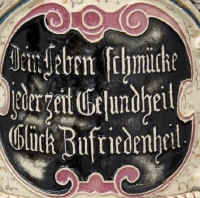 Dein Leben schmücke
jederzeit Gesundheit
Glück Zufriedenheit.